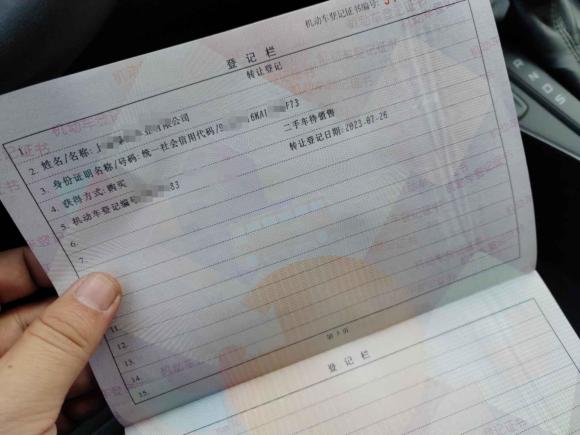 机动车登记证书编号:
登记栏
转让登记
1.
2. 姓名/名称: 公司
3. 身份证明名称/号码: 统一社会信用代码/ 6KA1 F73
二手车待销售
4. 获得方式: 购买
转让登记日期: 2023-07-26
5. 机动车登记编号 83
6.
7.
11.
12.
13.
14.
15.
第 3 页
登记栏
R N D S